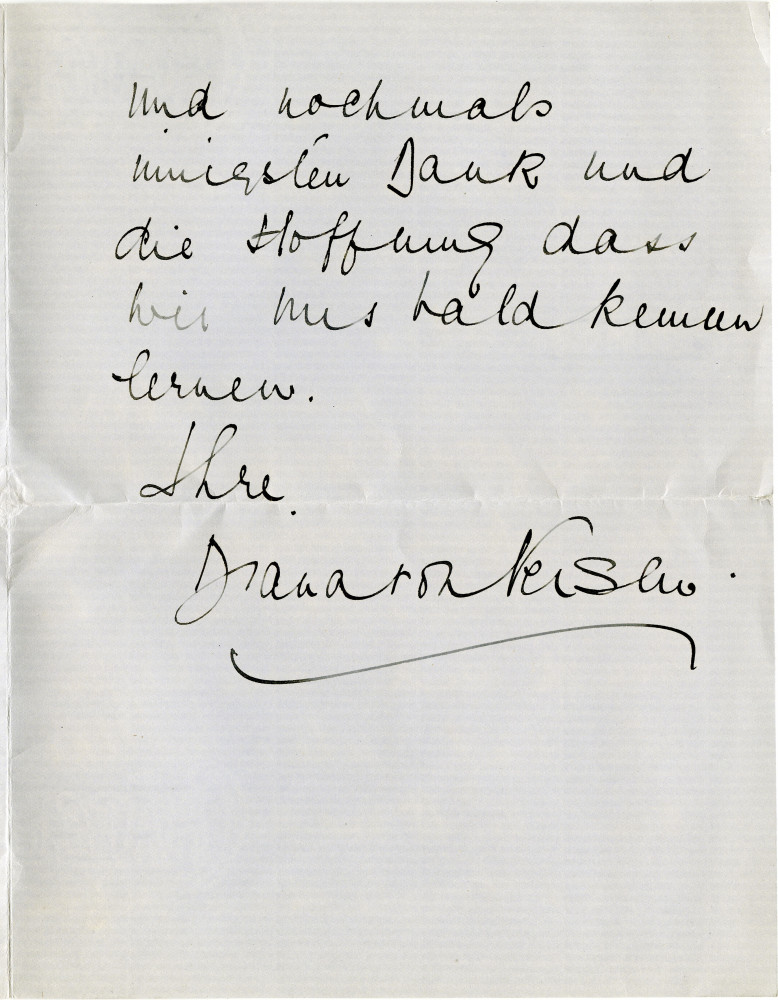 und nochmals
innigsten Dank und
die Hoffnung dass
wir uns bald kennen
lernen.
Ihre
Diana von